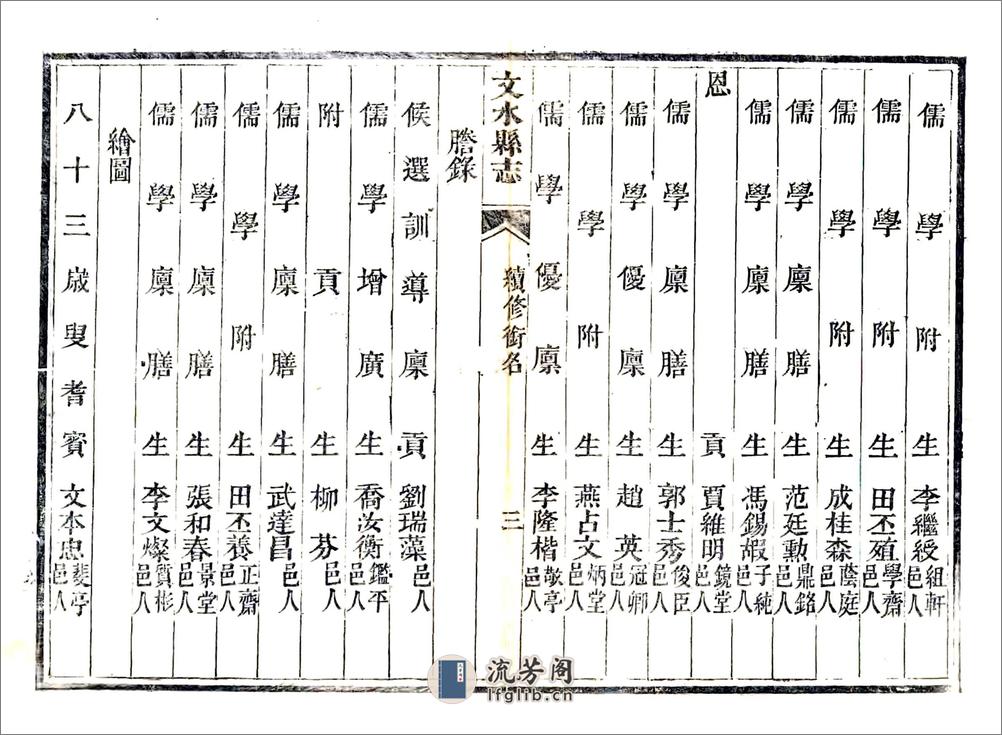 儒學附生李繼綬組軒邑人
儒學附生田丕殖學齋邑人
儒學附生成桂森蔭庭邑人
儒學廩膳生范廷勳鼎銘邑人
儒學廩膳生馮錫嘏子純邑人
恩貢賈維明鏡堂邑人
儒學廩膳生郭士秀俊臣邑人
儒學優廩生趙英冠卿邑人
儒學附生燕占文炳堂邑人
儒學優廩生李隆楷敬亭邑人
文水縣志
續修銜名
三
謄錄
候選訓導廩貢劉瑞藻邑人
儒學增廣生喬汝衡鑑平邑人
附貢柳芬邑人
儒學廩膳生武達昌邑人
儒學附生田丕養正齋邑人
儒學廩膳生張和春景堂邑人
儒學廩膳生李文燦質彬邑人
繪圖
八十三歲叟耆賓文本忠斐亭邑人
流芳阁
lfglib.cn